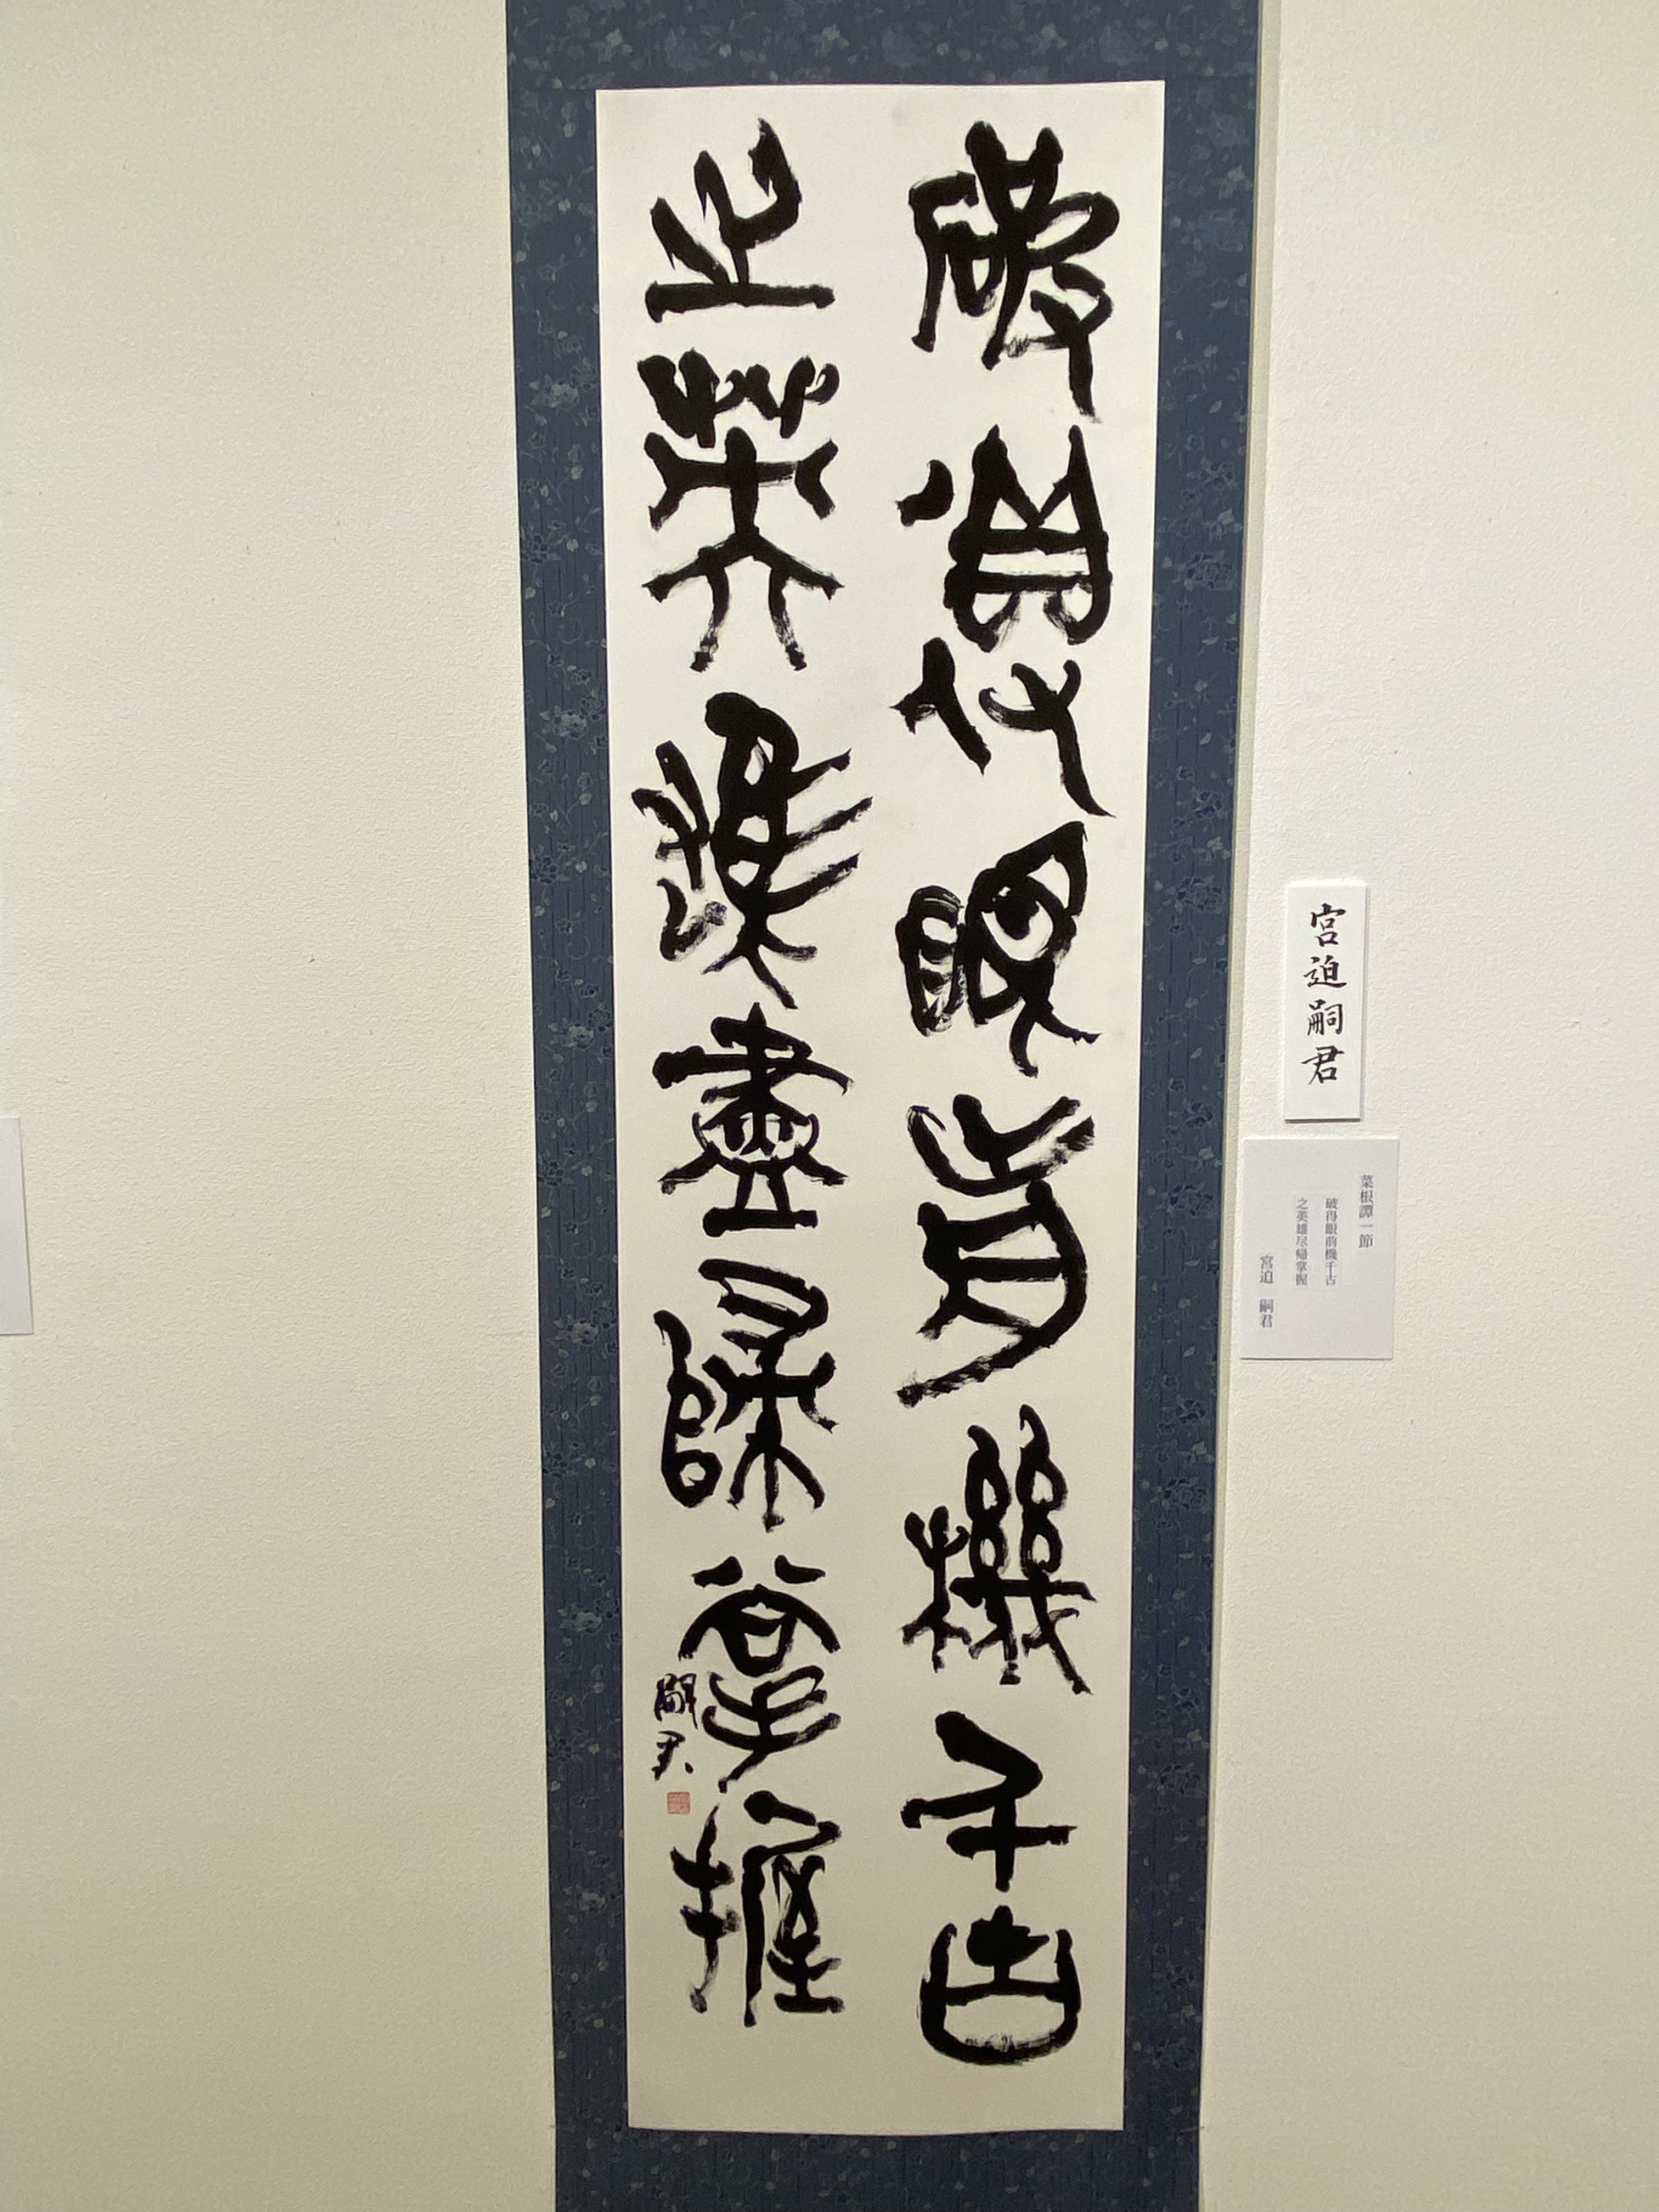 破得眼前機千古
之英雄盡歸掌握
嗣君
宮迫嗣君
菜根譚一節
破得眼前機千古
之英雄尽帰掌握
宮迫 嗣君